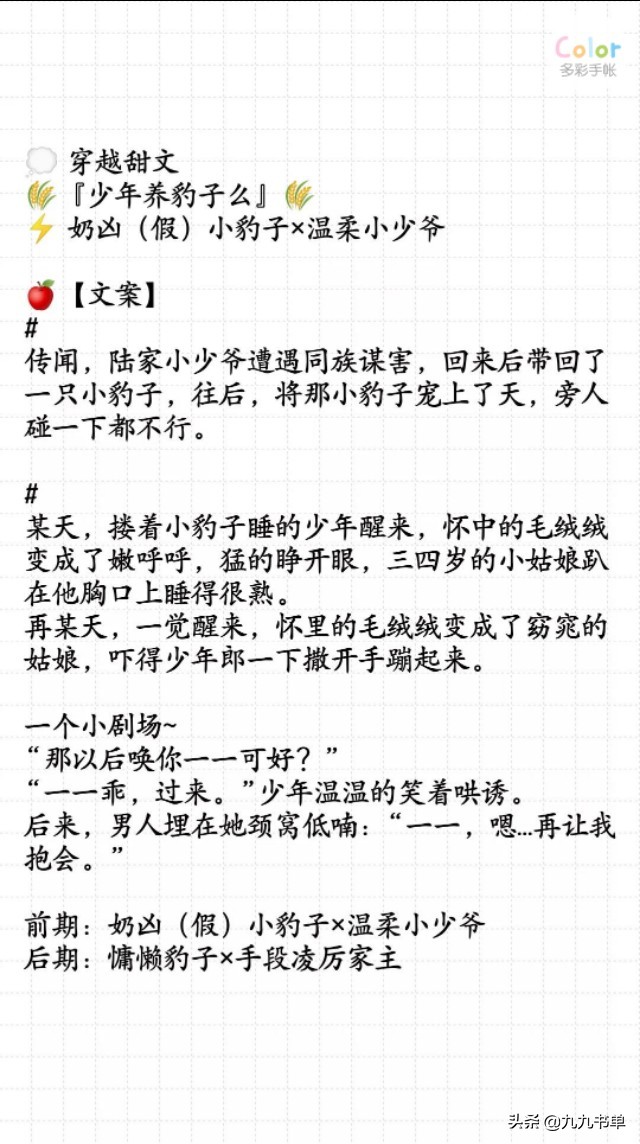 Color
多彩手帐
💭 穿越甜文
🌾『少年养豹子么』🌾
⚡ 奶凶（假）小豹子×温柔小少爷
🍎【文案】
#
传闻，陆家小少爷遭遇同族谋害，回来后带回了
一只小豹子，往后，将那小豹子宠上了天，旁人
碰一下都不行。
#
某天，搂着小豹子睡的少年醒来，怀中的毛绒绒
变成了嫩呼呼，猛的睁开眼，三四岁的小姑娘趴
在他胸口上睡得很熟。
再某天，一觉醒来，怀里的毛绒绒变成了窈窕的
姑娘，吓得少年郎一下撒开手蹦起来。
一个小剧场~
“那以后唤你一一可好？”
“一一乖，过来。”少年温温的笑着哄诱。
后来，男人埋在她颈窝低喃：“一一，嗯...再让我
抱会。”
前期：奶凶（假）小豹子×温柔小少爷
后期：慵懒豹子×手段凌厉家主
头条 @九九书单